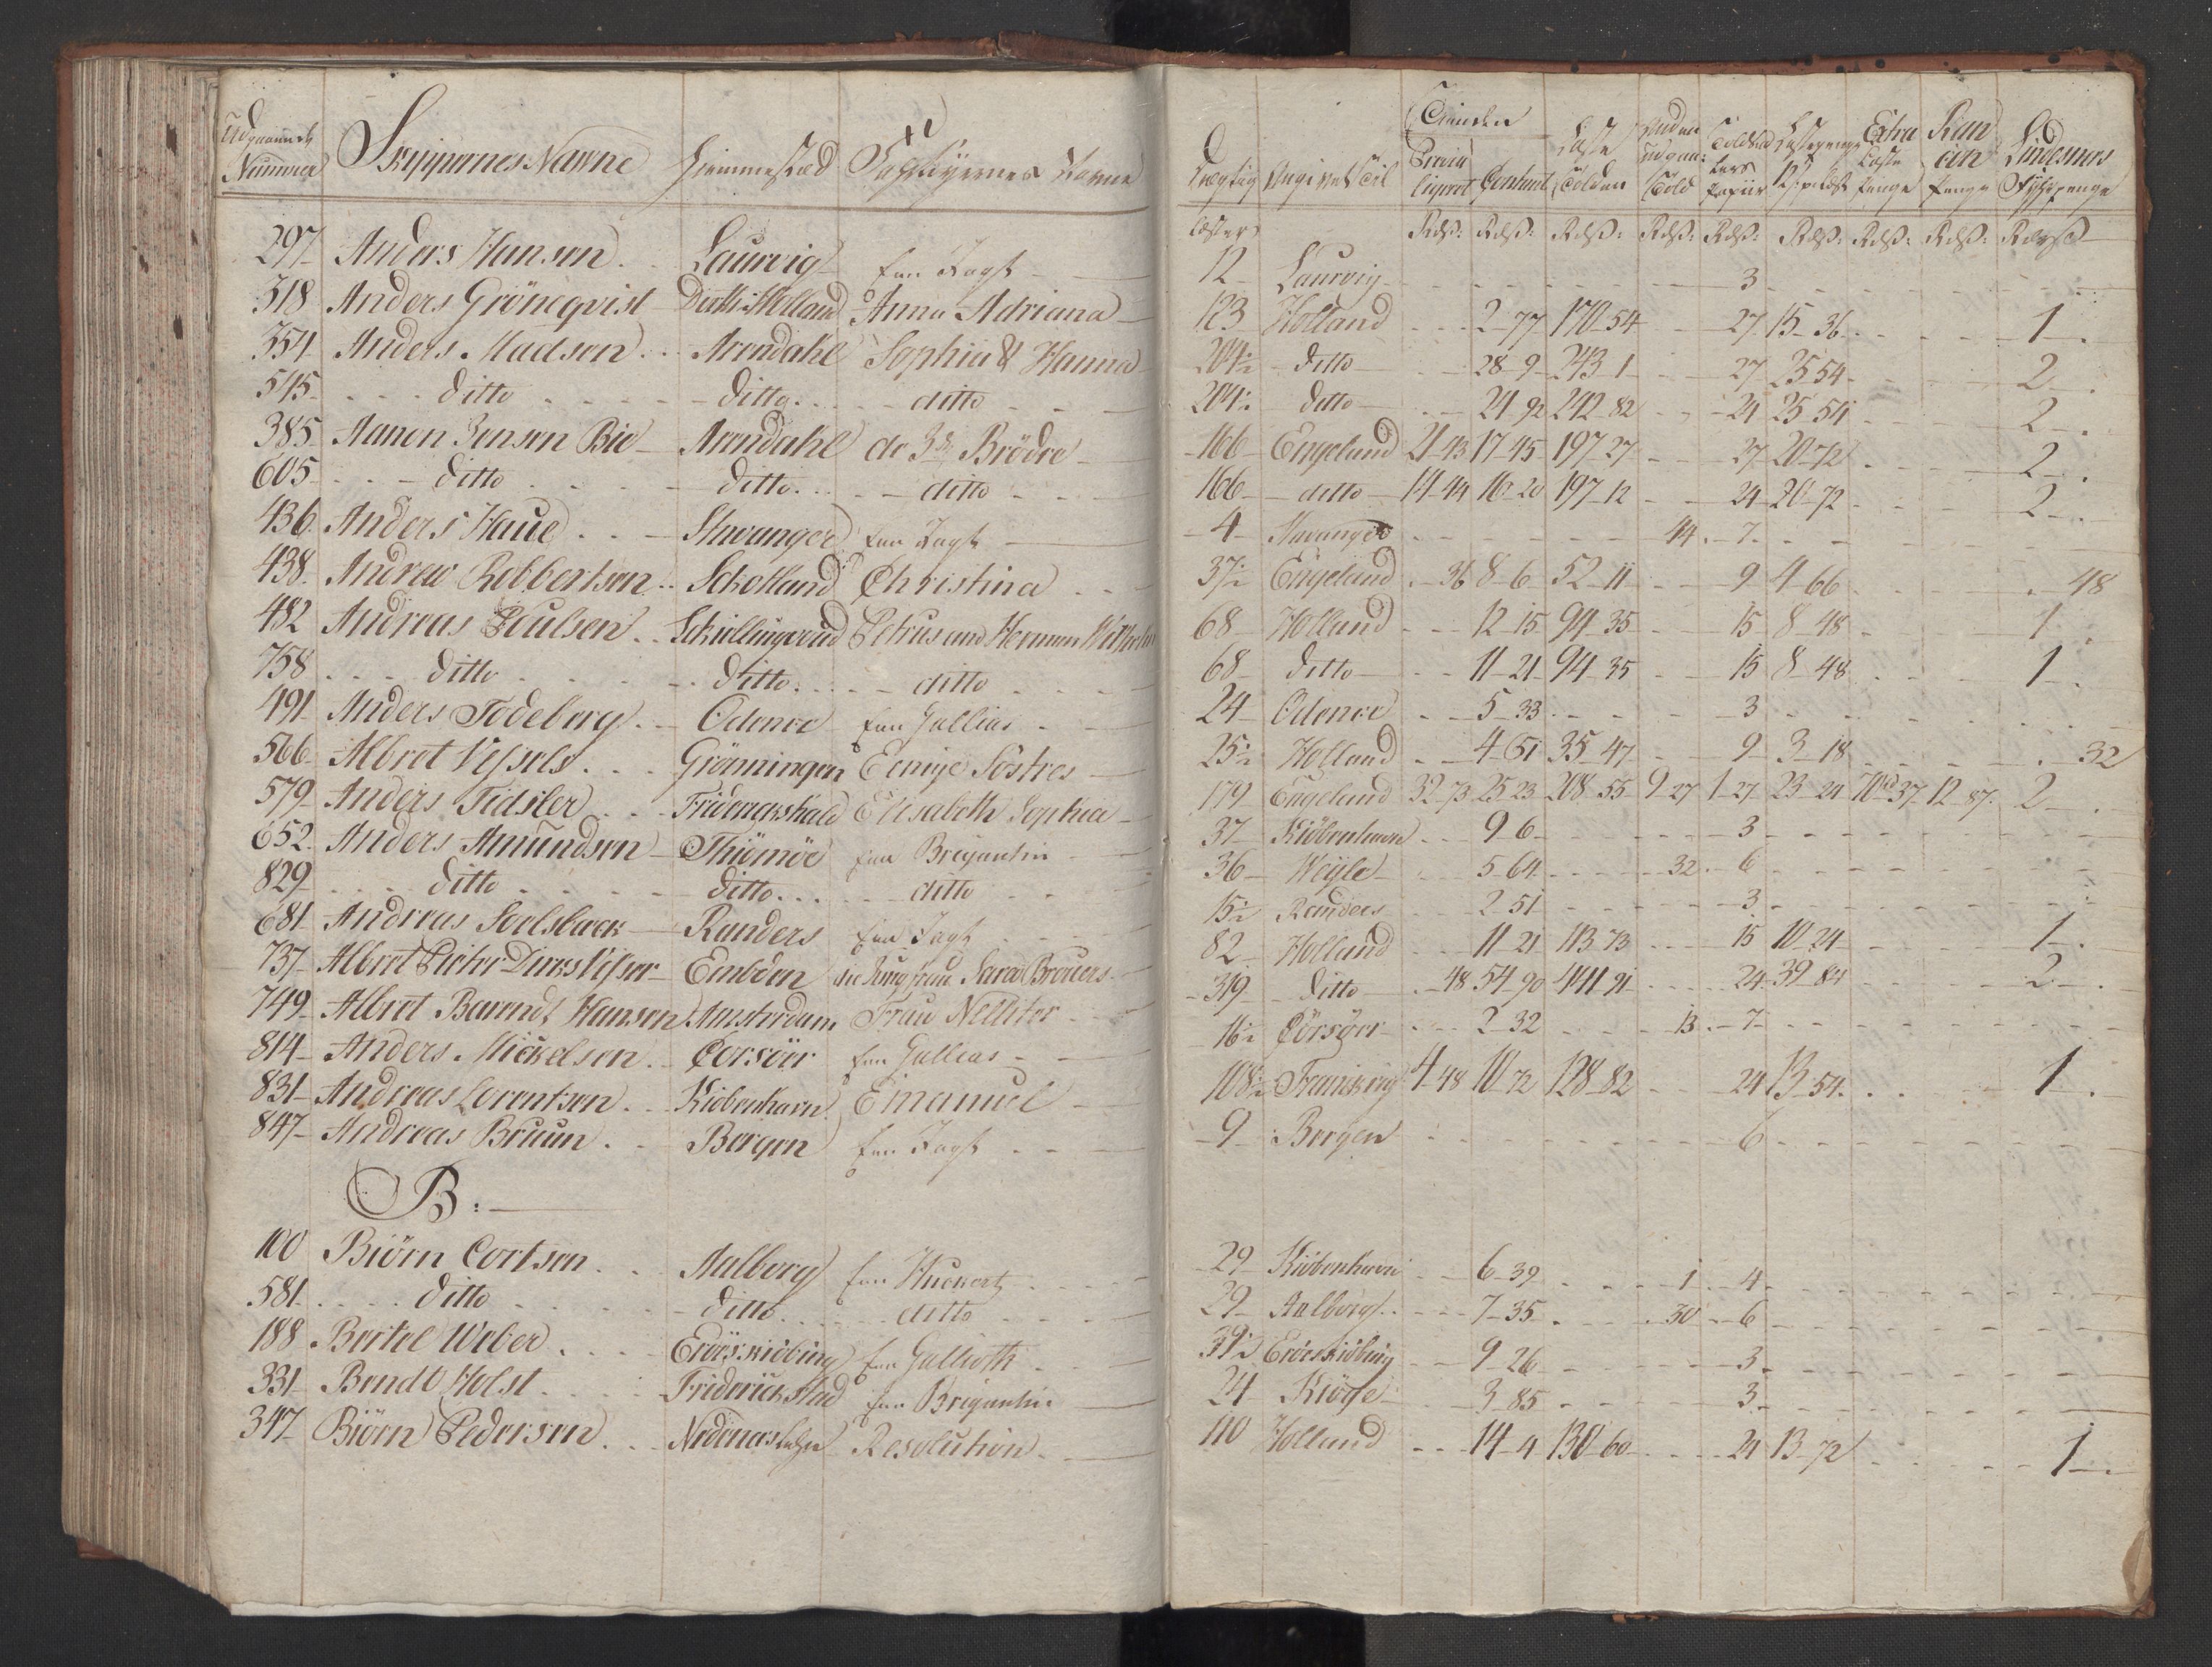 Udgaaende Nummer | Skippernes Navne | Hiemmestæd | Fahrtøyernes Navne | Drægtig | Angivet til | Tienden | Laste Tolden | Anden udgaa: Told | Laste penge | Extra Laste Penge | Ran cion Penge | Lindesnæs Fyhrpenge
Contant
Læster | Rdß: | Rdß: | Rdß: | Rdß: | Rdß: | Rdß: | Rdß: | Rdß: | Rdß
297 Anders Hansen . . Laurvig Een Jagt 12 Laurvig 3
318 Anders Gröneqvist Anna Adriana 123 Holland 2-77 170-54 27 15-36 1
354 Anders Madsen . . Arendahl Sophia & Hanna 204½ ditto 28-9 243-1 27 25-54 2
545 ditto ditto ditto 204½ ditto 24-92 242-82 24 25-54 2
385 Aanon Jensen Bie Arendahl de 3de Brödre 166 Engeland 21-43 17-45 197-27 27 20-72 2
605 ditto ditto ditto 166 ditto 14-44 16-20 197-12 24 20-72 2
436 Anders Haue . . Stavanger Een Jagt 4 Stavanger 44 7
438 Andrew Robbertson . . Schotland Christina 37½ Engeland 36 8-6 52-11 9 4-66 48
482 Andreas Poulsen . . Petrus und Herman Wilhelm 68 Holland 12-15 94-35 15 8-48 1
758 ditto ditto ditto 68 ditto 11-21 94-35 15 8-48 1
491 Anders Födeberg . . Odence Een Gallias 24 Odence 5-33 3
566 Albret Vessels . . Gröningen Eenige Söstres 25½ Holland 4-61 35-47 9 3-18 32
579 Anders Tidsler . . Friderichshald Elisabeth Sophia 179 Engeland 32-73 25-23 208-55 9-27 1-27 23-24 12-87 2
652 Anders Amundsen Thiömöe Een Brigantin 37 Kiöbenhavn 9-6 3
829 ditto ditto ditto 36 Weyle 5-64 32 6
681 Andreas Soelsback Randers Een Jagt 15½ Randers 2-51 3
737 Albret Pieter Dirks Visser Embden die Jungfrau Sara Brouers 82 Holland 11-21 113-73 15 10-24 1
749 Albret Barendt Hansen Amsterdam Frau 319 ditto 48 54-90 441-91 24 39-84 2
814 Anders Mickelsen . . Corsöer Een Gallias 16½ Corsöer 2-32 13 7
831 Andreas Lorentsen . . Kiöbenhavn Emanuel 108½ Franckrig 4-48 10-72 128-82 24 13-54 1
847 Andreas Bruun . . Bergen Een Jagt 9 Bergen 6
B:
100 Biörn Cortsen . . Aalborg Een Huckert 29 Kiöbenhavn 6-39 1 4
581 ditto ditto ditto 29 Aalborg 7-35 30 6
188 Bertel Weber . . Eröeskiöbing Een Gallioth 39½ Eröeskiöbing 9-26 3
331 Bendt Holst . . Friderickstad Een Brigantin 24 Kiöge 3-85 3
347 Biörn Pedersen . . Resolution 110 Holland 14-4 130-60 24 13-72 1